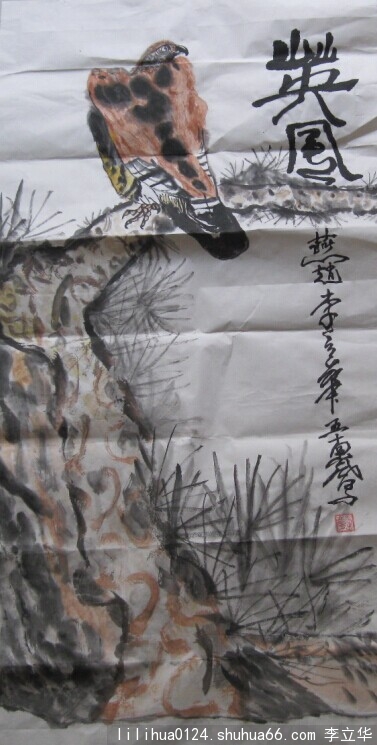 英風
燕趙李立華
lilihua0124.shuhua66.com 李立华